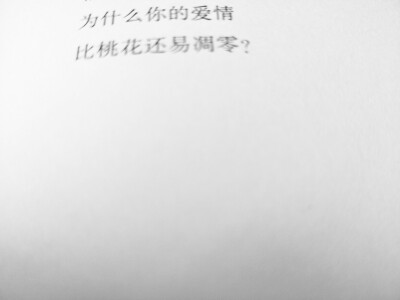 为什么你的爱情
比桃花还易凋零?